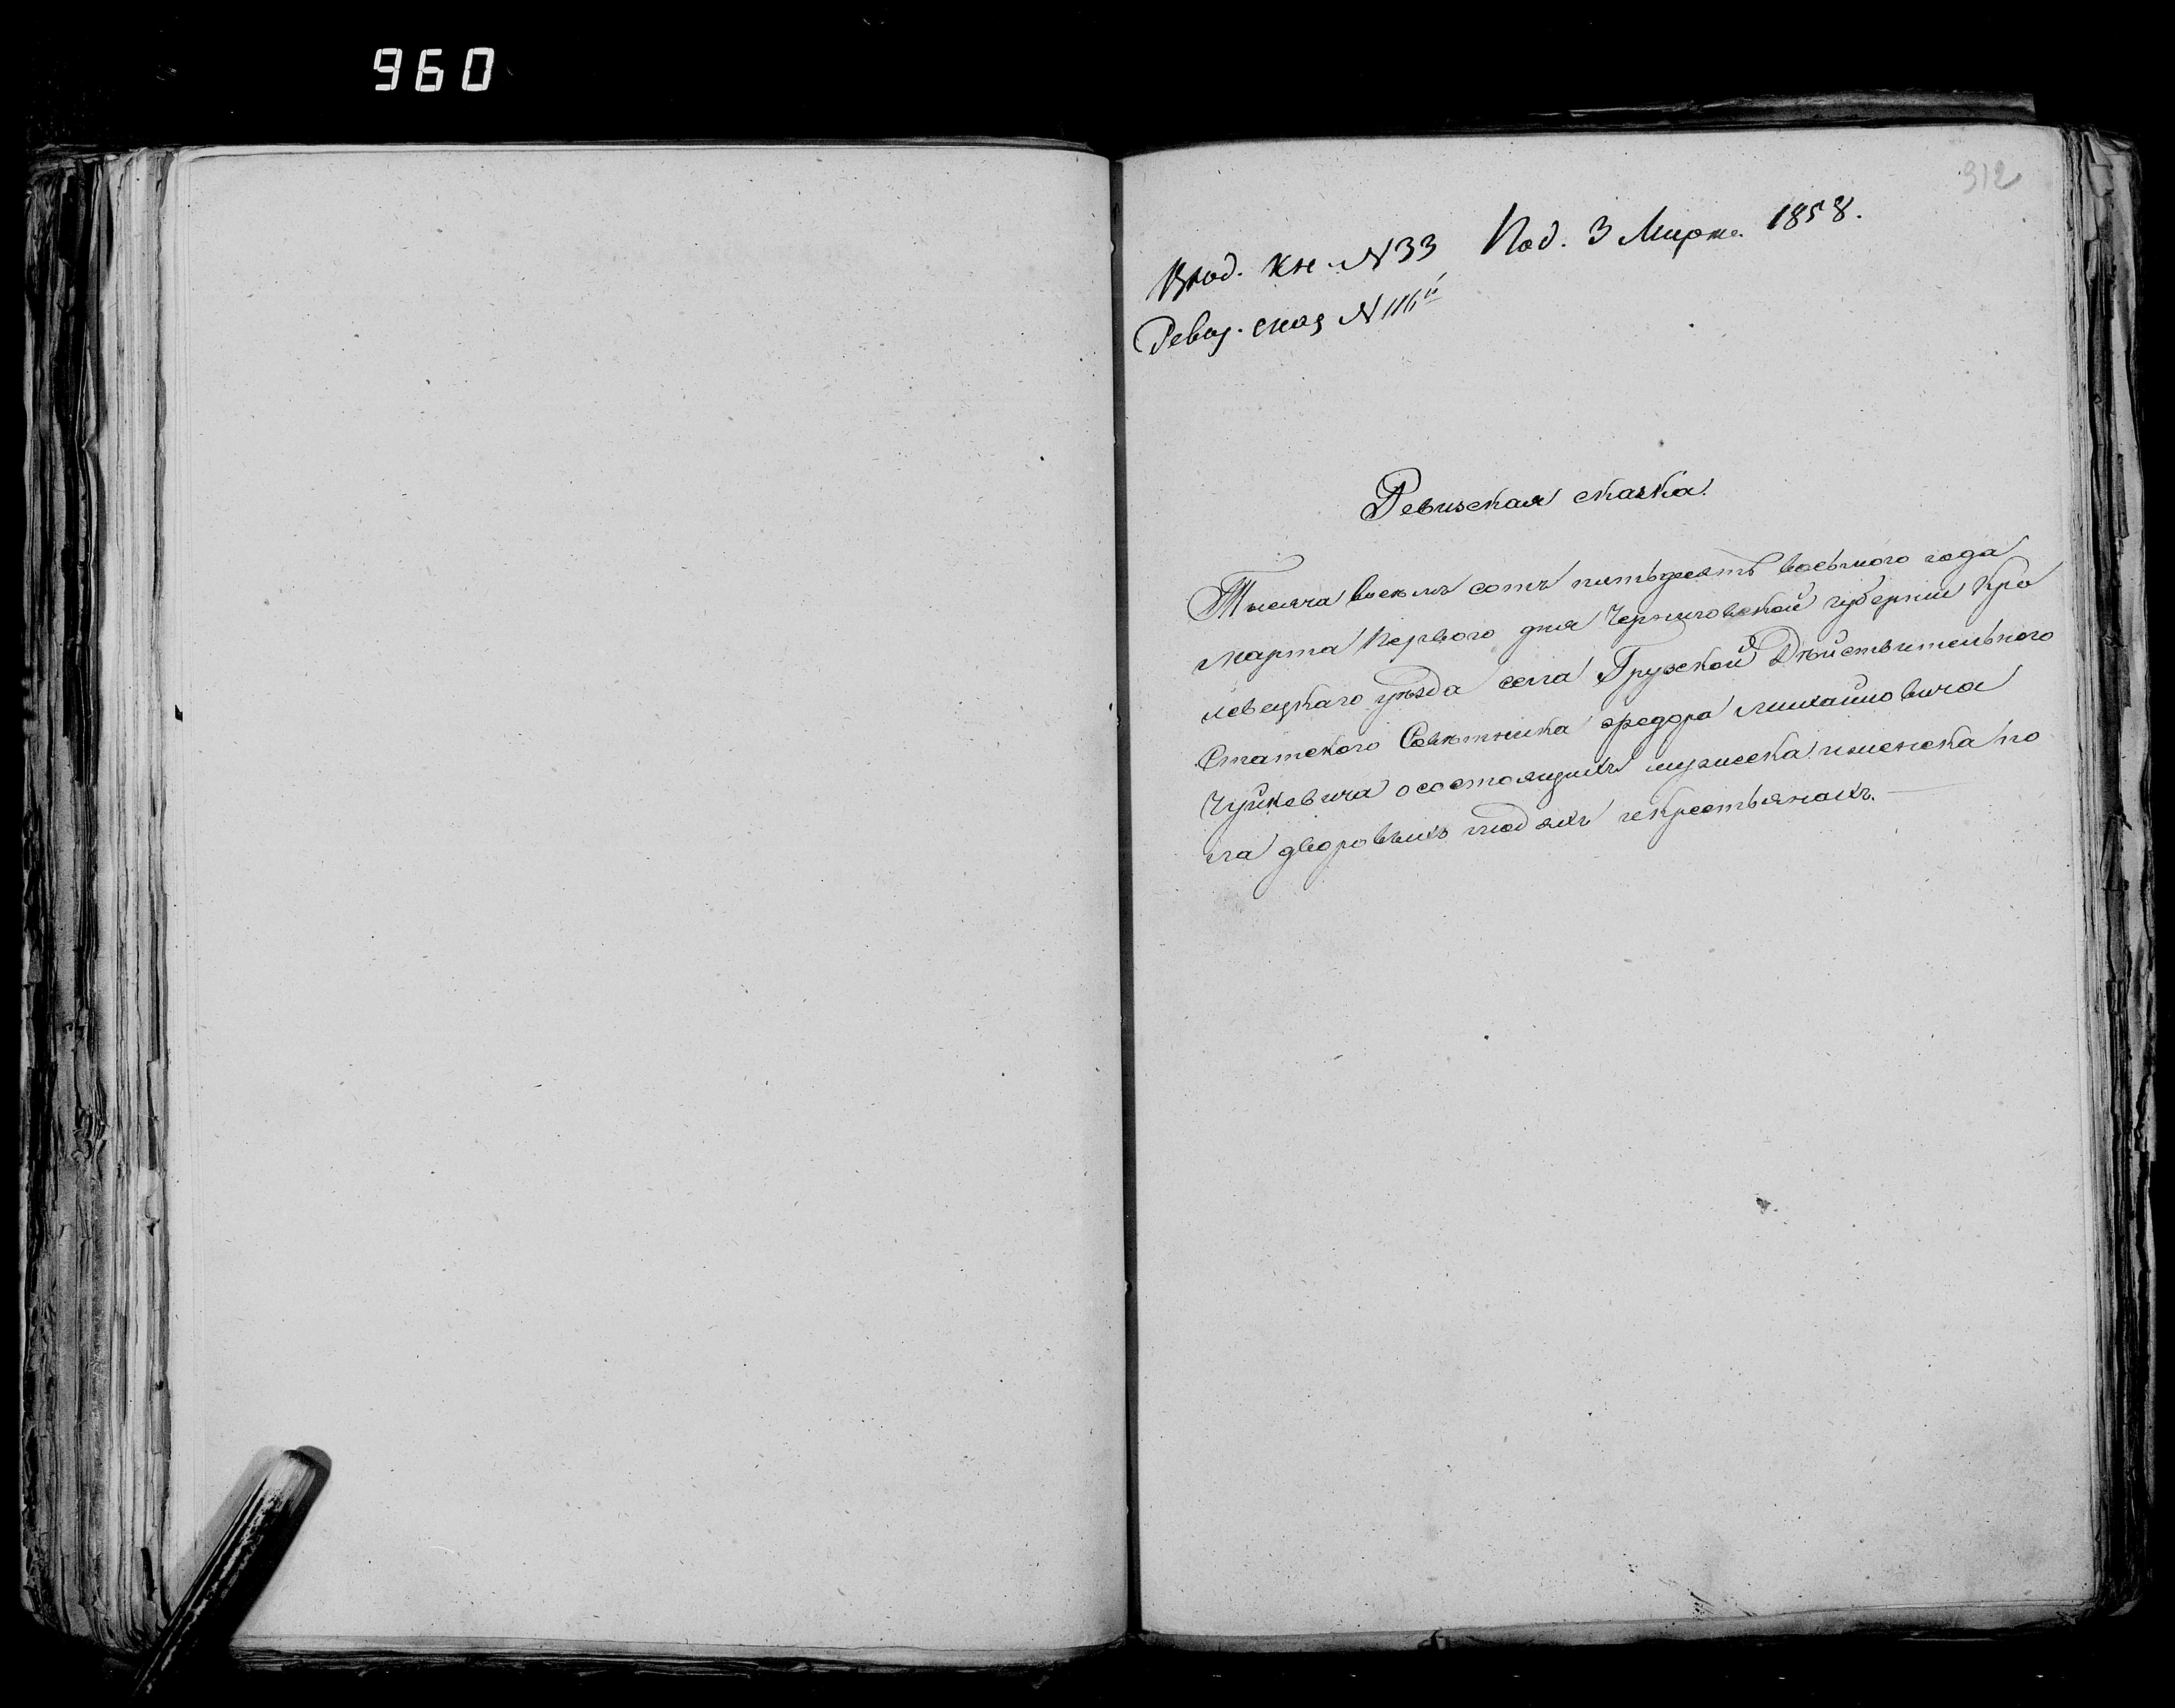 960
312
Вход. кн. №33 Под. 3 Марта 1858.
Ревиз. сказ №116й
Ревизская сказка.
Тысяча восемь сотъ пятьдесятъ восьмого года
марта Первого дня Черниговской губерніи Кро
левецкаго уѣзда села Грузской Дѣйствительного
Статского Совѣтника Федора Михайловича
Чуйкевича о состоящихъ мужеска и женска по
ла дворовыхъ людяхъ и крестьянахъ.